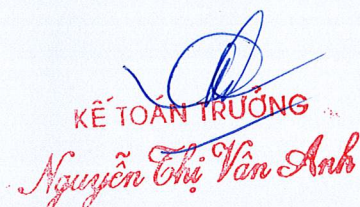 KẾ TOÁN TRƯỞNG
Nguyễn Thị Vân Anh